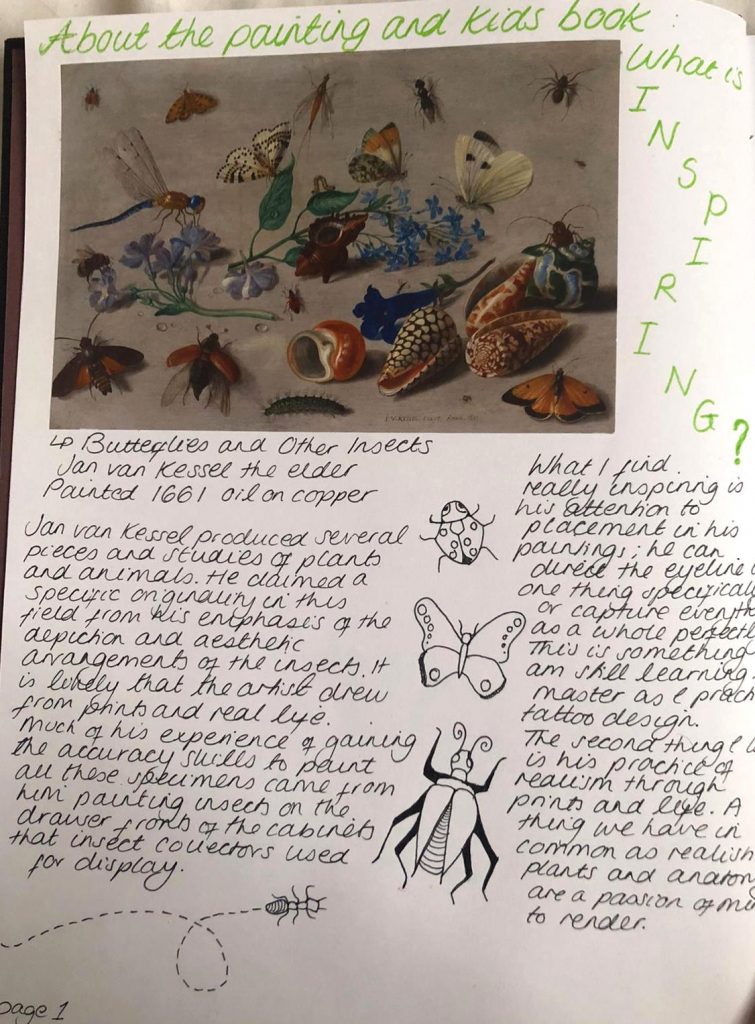 About the painting and kids book:
What is
INSPIRING?
↳ Butterflies and Other Insects
Jan van Kessel the elder
Painted 1661 oil on copper
Jan van Kessel produced several
pieces and studies of plants
and animals. He claimed a
specific originality in this
field from his emphasis of the
depiction and aesthetic
arrangements of the insects. It
is likely that the artist drew
from prints and real life.
Much of his experience of gaining
the accuracy skills to paint
all these specimens came from
him painting insects on the
drawer fronts of the cabinets
that insect collectors used
for display.
What I find
really inspiring is
his attention to
placement in his
paintings; he can
direct the eyeline
one thing
or capture
as a whole
This is something
am still learning
master as I
tattoo design.
The second thing I
is his practice of
realism through
prints and life. A
thing we have in
common as
plants and
are a passion of
to render.
page 1